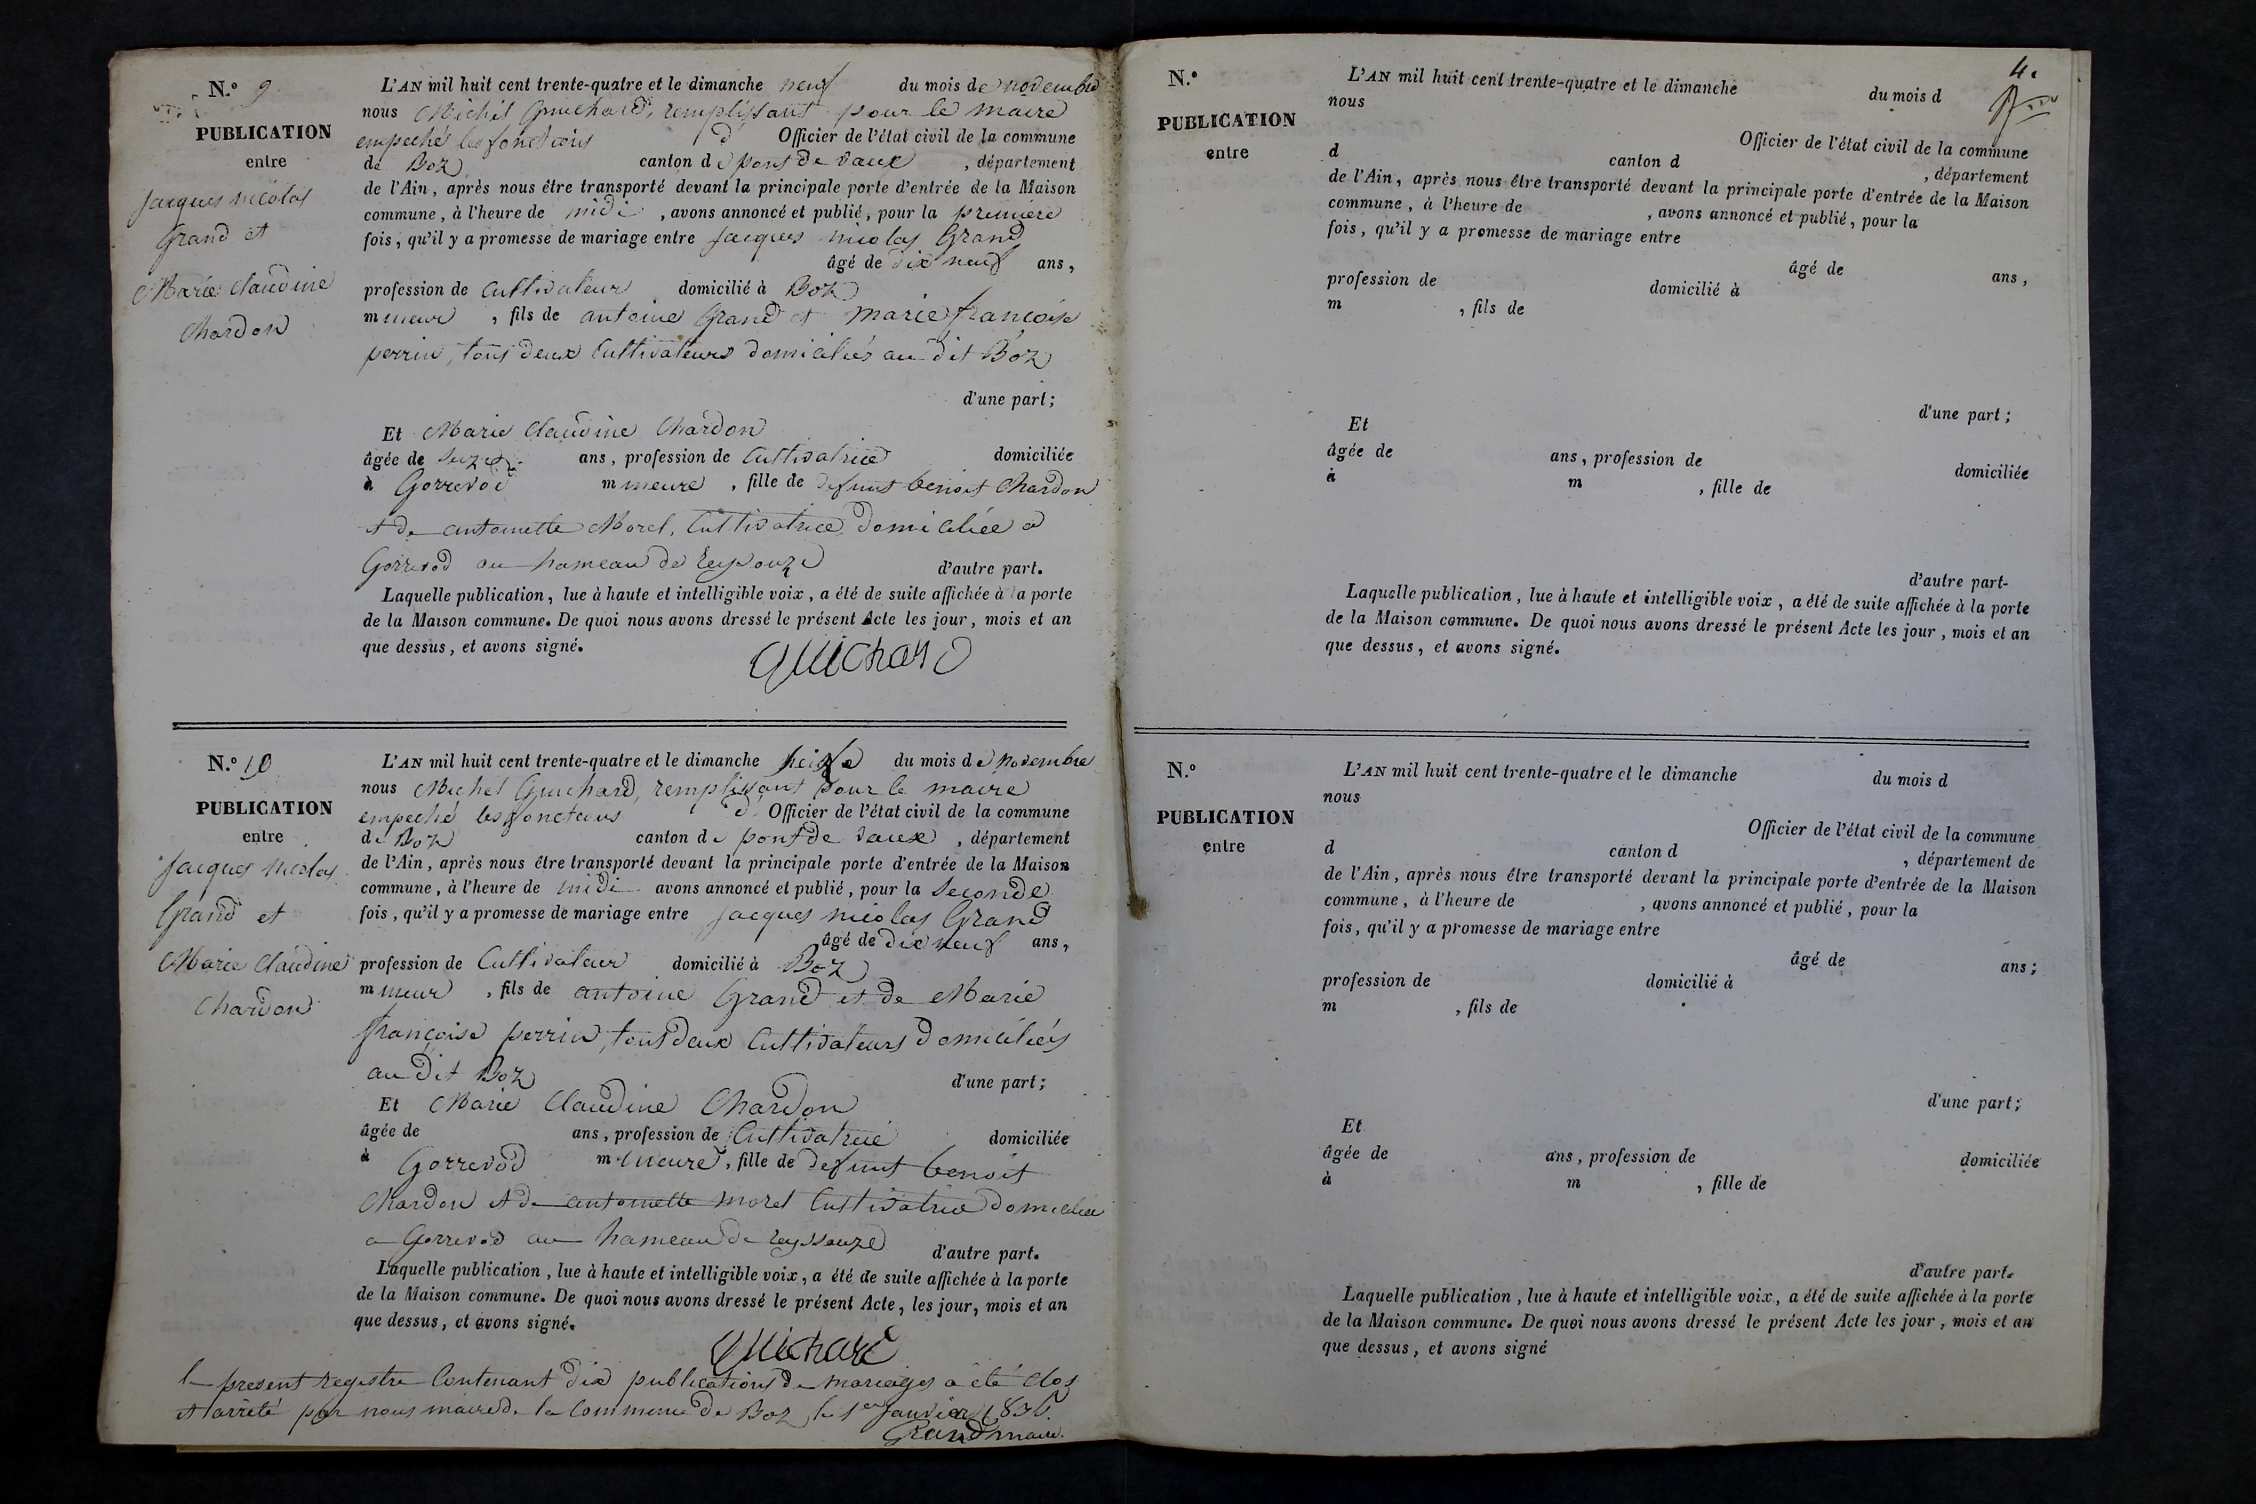 N.º 9
PUBLICATION
entre
Jacques nicolas
Grand et
Marie Claudine
Chardon
L'AN mil huit cent trente-quatre et le dimanche neuf du mois de novembre
nous Michel Guichard, remplissant pour le maire
empeché les fonctions d' Officier de l'état civil de la commune
de Boz canton de pont de vaux , département
de l'Ain, après nous être transporté devant la principale porte d'entrée de la Maison
commune, à l'heure de midi , avons annoncé et publié, pour la premiere
fois, qu'il y a promesse de mariage entre Jacques nicolas Grand
âgé de dix neuf ans,
profession de Cultivateur domicilié à Boz
mineur , fils de antoine Grand et marie françoise
perrin, tous deux Cultivateurs domiciliés au dit Boz
d'une part;
Et Marie Claudine Chardon
âgée de seize ans, profession de Cultivatrice domiciliée
à Gorrevod mineure , fille de defunt benoit Chardon
et de antoinette Morel, Cultivatrice domiciliée a
Gorrevod au hameau de reyssouze d'autre part.
Laquelle publication, lue à haute et intelligible voix, a été de suite affichée à la porte
de la Maison commune. De quoi nous avons dressé le présent Acte les jour, mois et an
que dessus, et avons signé.
Guichard
N.º 10
PUBLICATION
entre
Jacques nicolas
Grand et
Marie Claudine
Chardon
L'AN mil huit cent trente-quatre et le dimanche seize du mois de novembre
nous Michel Guichard, remplissant pour le maire
empeché les fonctions d' Officier de l'état civil de la commune
de Boz canton de pont de vaux , département
de l'Ain, après nous être transporté devant la principale porte d'entrée de la Maison
commune, à l'heure de midi avons annoncé et publié, pour la seconde
fois, qu'il y a promesse de mariage entre Jacques nicolas Grand
âgé de dix neuf ans,
profession de Cultivateur domicilié à Boz
mineur , fils de antoine Grand et de Marie
françoise perrin, tous deux Cultivateurs domiciliés
au dit Boz d'une part;
Et Marie Claudine Chardon
âgée de ans, profession de Cultivatrice domiciliée
à Gorrevod mineure, fille de defunt benoit
Chardon et de antoinette morel Cultivatrice domiciliée
a Gorrevod au hameau de reyssouze d'autre part.
Laquelle publication, lue à haute et intelligible voix, a été de suite affichée à la porte
de la Maison commune. De quoi nous avons dressé le présent Acte, les jour, mois et an
que dessus, et avons signé.
Guichard
le present registre Contenant dix publications de mariages a été clos
et arrêté par nous maire de la Commune de Boz, le 1er Janvier 1835.
Grand maire.
4.
N.º
PUBLICATION
entre
L'AN mil huit cent trente-quatre et le dimanche du mois d
nous
Officier de l'état civil de la commune
d canton d , département
de l'Ain, après nous être transporté devant la principale porte d'entrée de la Maison
commune, à l'heure de , avons annoncé et publié, pour la
fois, qu'il y a promesse de mariage entre
âgé de ans,
profession de domicilié à
m , fils de
d'une part;
Et
âgée de ans, profession de domiciliée
à m , fille de
d'autre part-
Laquelle publication, lue à haute et intelligible voix, a été de suite affichée à la porte
de la Maison commune. De quoi nous avons dressé le présent Acte les jour, mois et an
que dessus, et avons signé.
N.º
PUBLICATION
entre
L'AN mil huit cent trente-quatre et le dimanche du mois d
nous
Officier de l'état civil de la commune
d canton d , département de
de l'Ain, après nous être transporté devant la principale porte d'entrée de la Maison
commune, à l'heure de , avons annoncé et publié, pour la
fois, qu'il y a promesse de mariage entre
âgé de ans;
profession de domicilié à
m , fils de
d'une part;
Et
âgée de ans, profession de domiciliée
à m , fille de
d'autre part.
Laquelle publication, lue à haute et intelligible voix, a été de suite affichée à la porte
de la Maison commune. De quoi nous avons dressé le présent Acte les jour, mois et an
que dessus, et avons signé